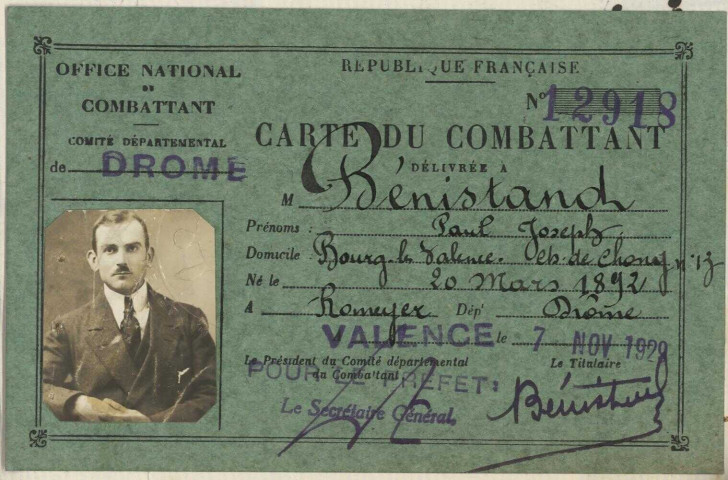 OFFICE NATIONAL
DU
COMBATTANT
COMITÉ DÉPARTEMENTAL
de DROME
RÉPUBLIQUE FRANÇAISE
N° 12918
CARTE DU COMBATTANT
DÉLIVRÉE À
M Bénistand
Prénoms : Paul Joseph
Domicile : Bourg-les-Valence. Ch. de Chony n° 13
Né le 20 Mars 1892
A Romeyer Dép^t Drôme
VALENCE le 7 NOV 1929
Le Président du Comité départemental
du Combattant
Le Titulaire
POUR LE PREFET:
Le Secrétaire Général,
Bénistand